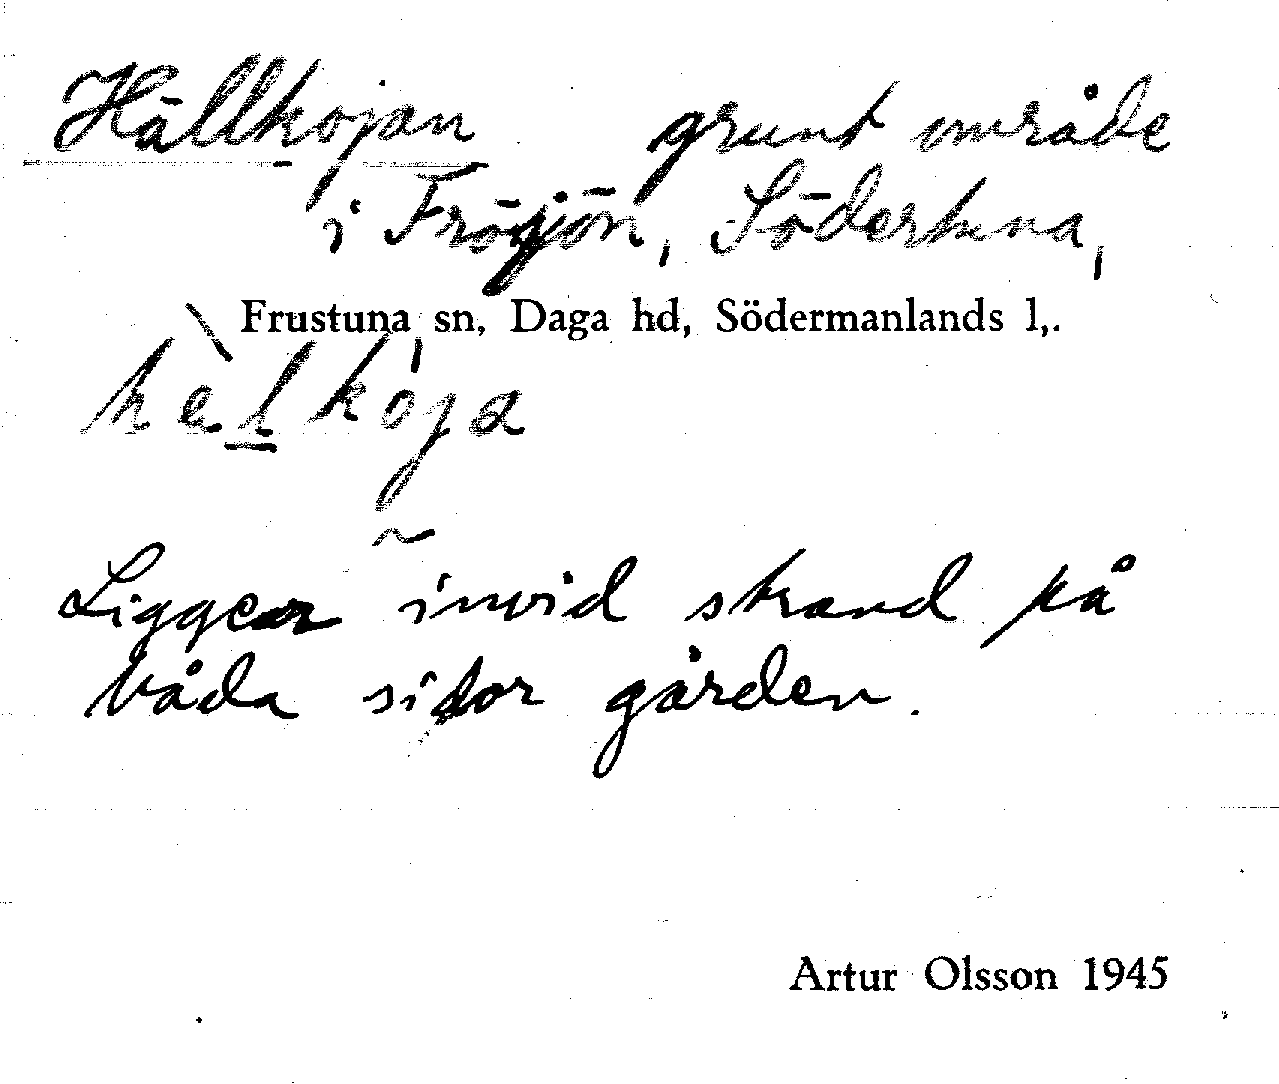 Hällkojan grunt område
i Frösjön, Södertuna,
Frustuna sn, Daga hd, Södermanlands l,.
hälkoja
Ligger invid strand på
båda sidor gården.
Artur Olsson 1945